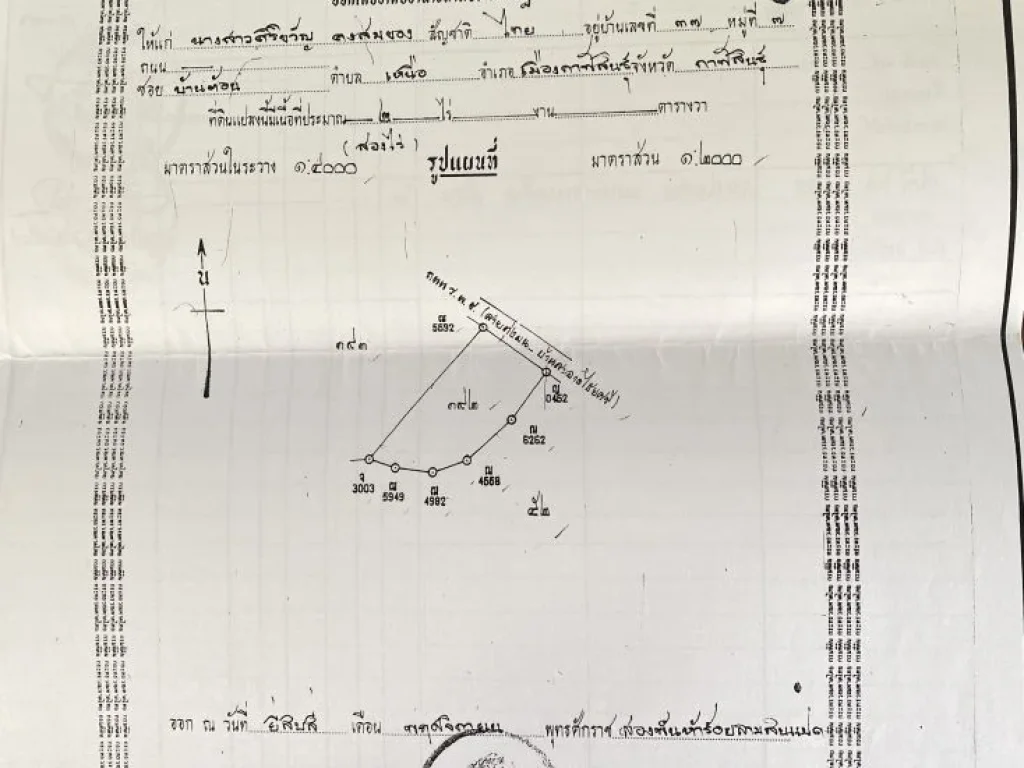 ให้แก่ นางสาวศิริขวัญ คงสมของ สัญชาติ ไทย อยู่บ้านเลขที่ ๓๗ หมู่ที่ ๗
ถนน
ซอย บ้านต้อน ตำบล เหนือ อำเภอ เมืองกาฬสินธุ์ จังหวัด กาฬสินธุ์
ที่ดินแปลงนี้มีเนื้อที่ประมาณ ๒ ไร่ งาน ตารางวา
(สองไร่)
มาตราส่วนในระวาง ๑:๔๐๐๐ รูปแผนที่ มาตราส่วน ๑:๒๐๐๐
น
ถนน ร.พ.ช.
ฌ
5692
๑๔๓
ณ
0462
๑๔๒
ฌ
6262
จ
3003
ฌ
5949
ฌ
4982
ฌ
4568
๕๒
ออก ณ วันที่ ยี่สิบสี่ เดือน พฤศจิกายน พุทธศักราช สองพันห้าร้อยสามสิบแปด